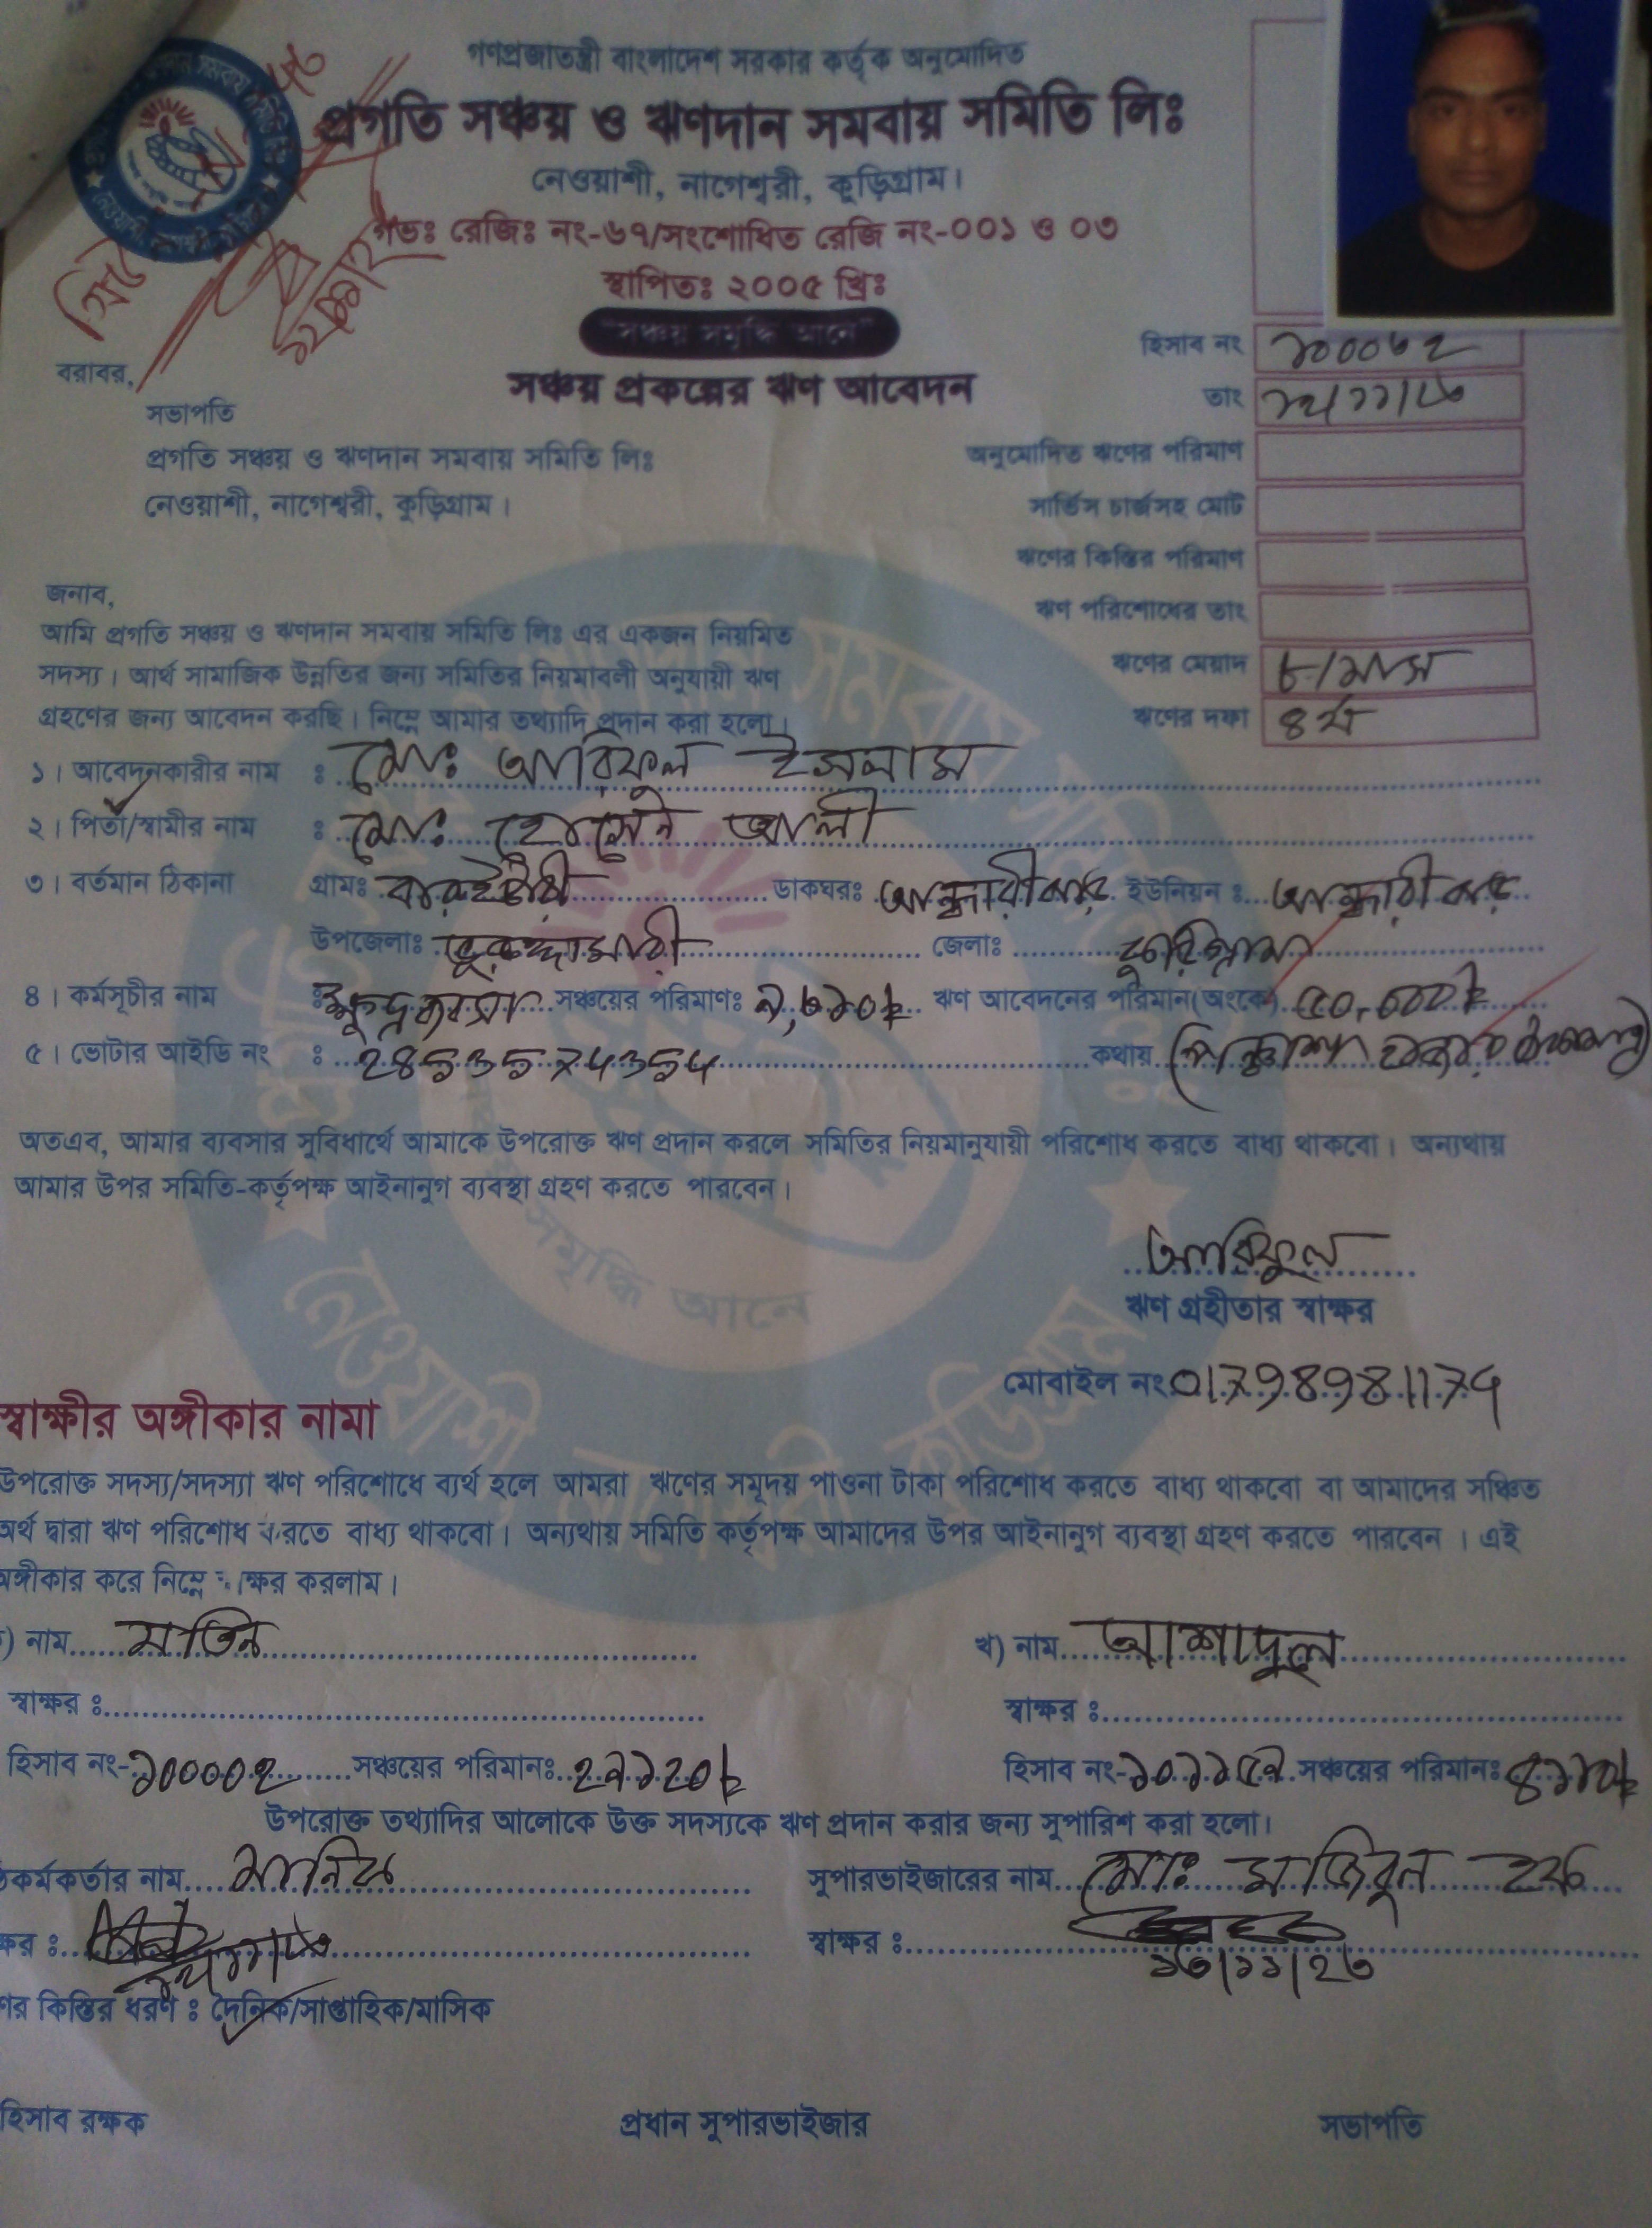 গণপ্রজাতন্ত্রী বাংলাদেশ সরকার কর্তৃক অনুমোদিত
প্রগতি সঞ্চয় ও ঋণদান সমবায় সমিতি লিঃ
নেওয়াশী, নাগেশ্বরী, কুড়িগ্রাম।
গভঃ রেজিঃ নং-৬৭/সংশোধিত রেজি নং-০০১ ও ০৩
স্থাপিতঃ ২০০৫ খ্রিঃ
"সঞ্চয় সমৃদ্ধি আনে"
সঞ্চয় প্রকল্পের ঋণ আবেদন
হিসাব নং ১০০০৬২
তাং
অনুমোদিত ঋণের পরিমাণ
সার্ভিস চার্জসহ মোট
ঋণের কিস্তির পরিমাণ
ঋণ পরিশোধের তাং
ঋণের মেয়াদ ৮/মাস
ঋণের দফা ৪র্থ
বরাবর,
সভাপতি
প্রগতি সঞ্চয় ও ঋণদান সমবায় সমিতি লিঃ
নেওয়াশী, নাগেশ্বরী, কুড়িগ্রাম।
জনাব,
আমি প্রগতি সঞ্চয় ও ঋণদান সমবায় সমিতি লিঃ এর একজন নিয়মিত
সদস্য। আর্থ সামাজিক উন্নতির জন্য সমিতির নিয়মাবলী অনুযায়ী ঋণ
গ্রহণের জন্য আবেদন করছি। নিম্নে আমার তথ্যাদি প্রদান করা হলো।
১। আবেদনকারীর নাম : মোঃ আরিফুল ইসলাম
২। পিতা/স্বামীর নাম : মোঃ হোসেন আলী
৩। বর্তমান ঠিকানা গ্রামঃ ডাকঘরঃ আন্ধারীঝাড় ইউনিয়ন : আন্ধারীঝাড়
উপজেলাঃ ভূরুঙ্গামারী জেলাঃ কুড়িগ্রাম
৪। কর্মসূচীর নাম : ক্ষুদ্রব্যবসা সঞ্চয়ের পরিমাণঃ ঋণ আবেদনের পরিমান(অংকে) ৫০,০০০/=
৫। ভোটার আইডি নং : কথায় (পঞ্চাশ হাজার টাকা মাত্র)
অতএব, আমার ব্যবসার সুবিধার্থে আমাকে উপরোক্ত ঋণ প্রদান করলে সমিতির নিয়মানুযায়ী পরিশোধ করতে বাধ্য থাকবো। অন্যথায়
আমার উপর সমিতি-কর্তৃপক্ষ আইনানুগ ব্যবস্থা গ্রহণ করতে পারবেন।
আরিফুল
ঋণ গ্রহীতার স্বাক্ষর
মোবাইল নং
স্বাক্ষীর অঙ্গীকার নামা
উপরোক্ত সদস্য/সদস্যা ঋণ পরিশোধে ব্যর্থ হলে আমরা ঋণের সমূদয় পাওনা টাকা পরিশোধ করতে বাধ্য থাকবো বা আমাদের সঞ্চিত
অর্থ দ্বারা ঋণ পরিশোধ করতে বাধ্য থাকবো। অন্যথায় সমিতি কর্তৃপক্ষ আমাদের উপর আইনানুগ ব্যবস্থা গ্রহণ করতে পারবেন। এই
অঙ্গীকার করে নিম্নে স্বাক্ষর করলাম।
) নাম মতিন খ) নাম আশাদুল
স্বাক্ষর : স্বাক্ষর :
হিসাব নং-১০০০০২ সঞ্চয়ের পরিমানঃ ২৭১২০/= হিসাব নং-১০১১৫৭ সঞ্চয়ের পরিমানঃ ৪১১০/=
উপরোক্ত তথ্যাদির আলোকে উক্ত সদস্যকে ঋণ প্রদান করার জন্য সুপারিশ করা হলো।
কর্মকর্তার নাম মানিক সুপারভাইজারের নাম মোঃ মজিবুল হক
ক্ষর : স্বাক্ষর :
১৩/১১/২৩
ণের কিস্তির ধরণ : দৈনিক/সাপ্তাহিক/মাসিক
হিসাব রক্ষক প্রধান সুপারভাইজার সভাপতি